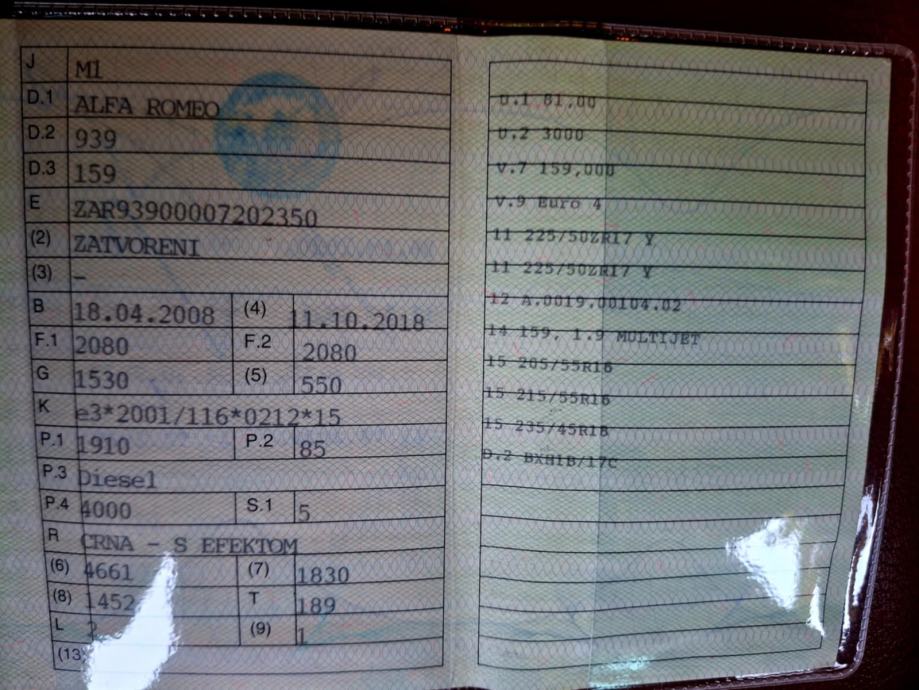 J M1
D.1 ALFA ROMEO
D.2 939
D.3 159
E ZAR93900007202350
(2) ZATVORENI
(3) –
B 18.04.2008 (4) 11.10.2018
F.1 2080 F.2 2080
G 1530 (5) 550
K e3*2001/116*0212*15
P.1 1910 P.2 85
P.3 Diesel
P.4 4000 S.1 5
R CRNA - S EFEKTOM
(6) 4661 (7) 1830
(8) 1452 T 189
L 2 (9) 1
(13)
U.1 81,00
U.2 3000
V.7 159,000
V.9 Euro 4
11 225/50ZR17 Y
11 225/50ZR17 Y
12 A.0019.00104.02
14 159, 1.9 MULTIJET
15 205/55R16
15 215/55R16
15 235/45R18
D.2 BXH1B/17C